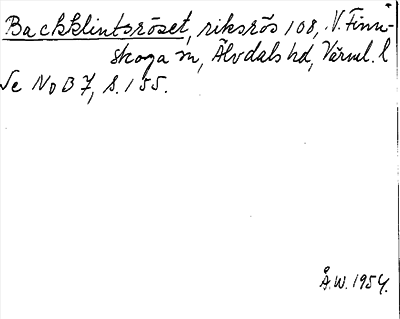 Backklintsröset, riksrös 108, N. Finn-
skoga sn, Älvdals hd, Värml. l
Se NoB 7, s. 155.
Å.W. 1954.